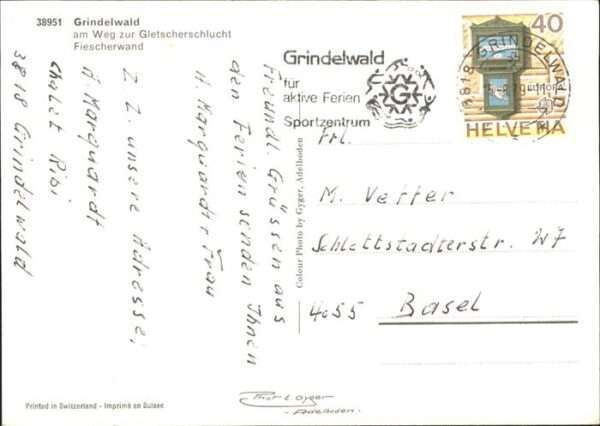 38951 Grindelwald
am Weg zur Gletscherschlucht
Fiescherwand
Freundl. Grüssen aus
den Ferien senden Ihnen
H. Marquardt + Frau
z. Z. unsere Adresse:
H. Marquardt
Chalet Ribi
3818 Grindelwald
Grindelwald
für
aktive Ferien
Sportzentrum
G
40
3818 GRINDELWALD
HELVETIA
Colour Photo by Gyger, Adelboden
Frl.
M. Vetter
Schlettstadterstr.
4055 Basel
Phot E. Gyger
Adelboden
Printed in Switzerland - Imprimé en Suisse